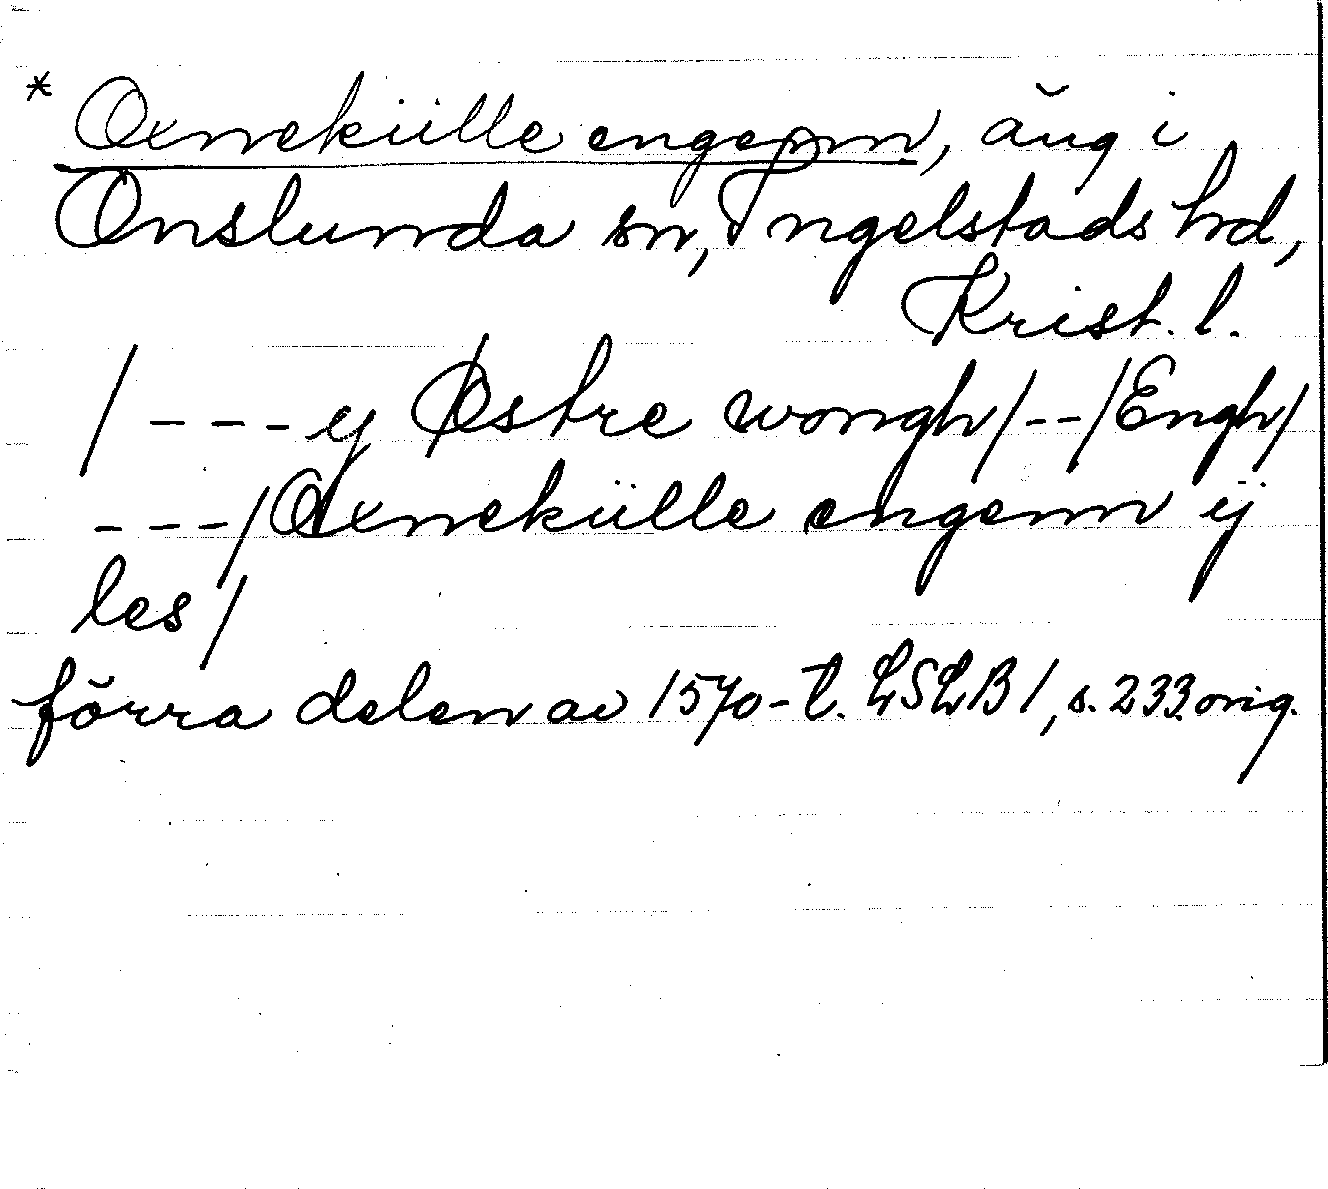 * Oxnekülle engenn, äng i
Onslunda sn, Ingelstads hd,
Krist. l.
/ - - - y Østre wongh/ - - /Engh/
- - - /Oxnekülle engenn ÿ
les/
förra delen av 1570-t. LSLB 1, s. 233 orig.